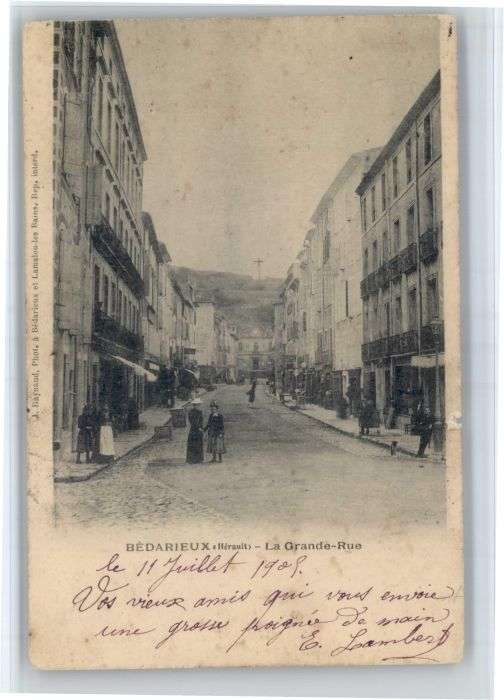 J. Raynaud, Phot. à Bédarieux et Lamalou-les Bains. Rep. interd.
BÉDARIEUX (Hérault) – La Grande-Rue
le 11 Juillet 1905.
Vos vieux amis qui vous envoie
une grosse poignée de main
E. Lambert